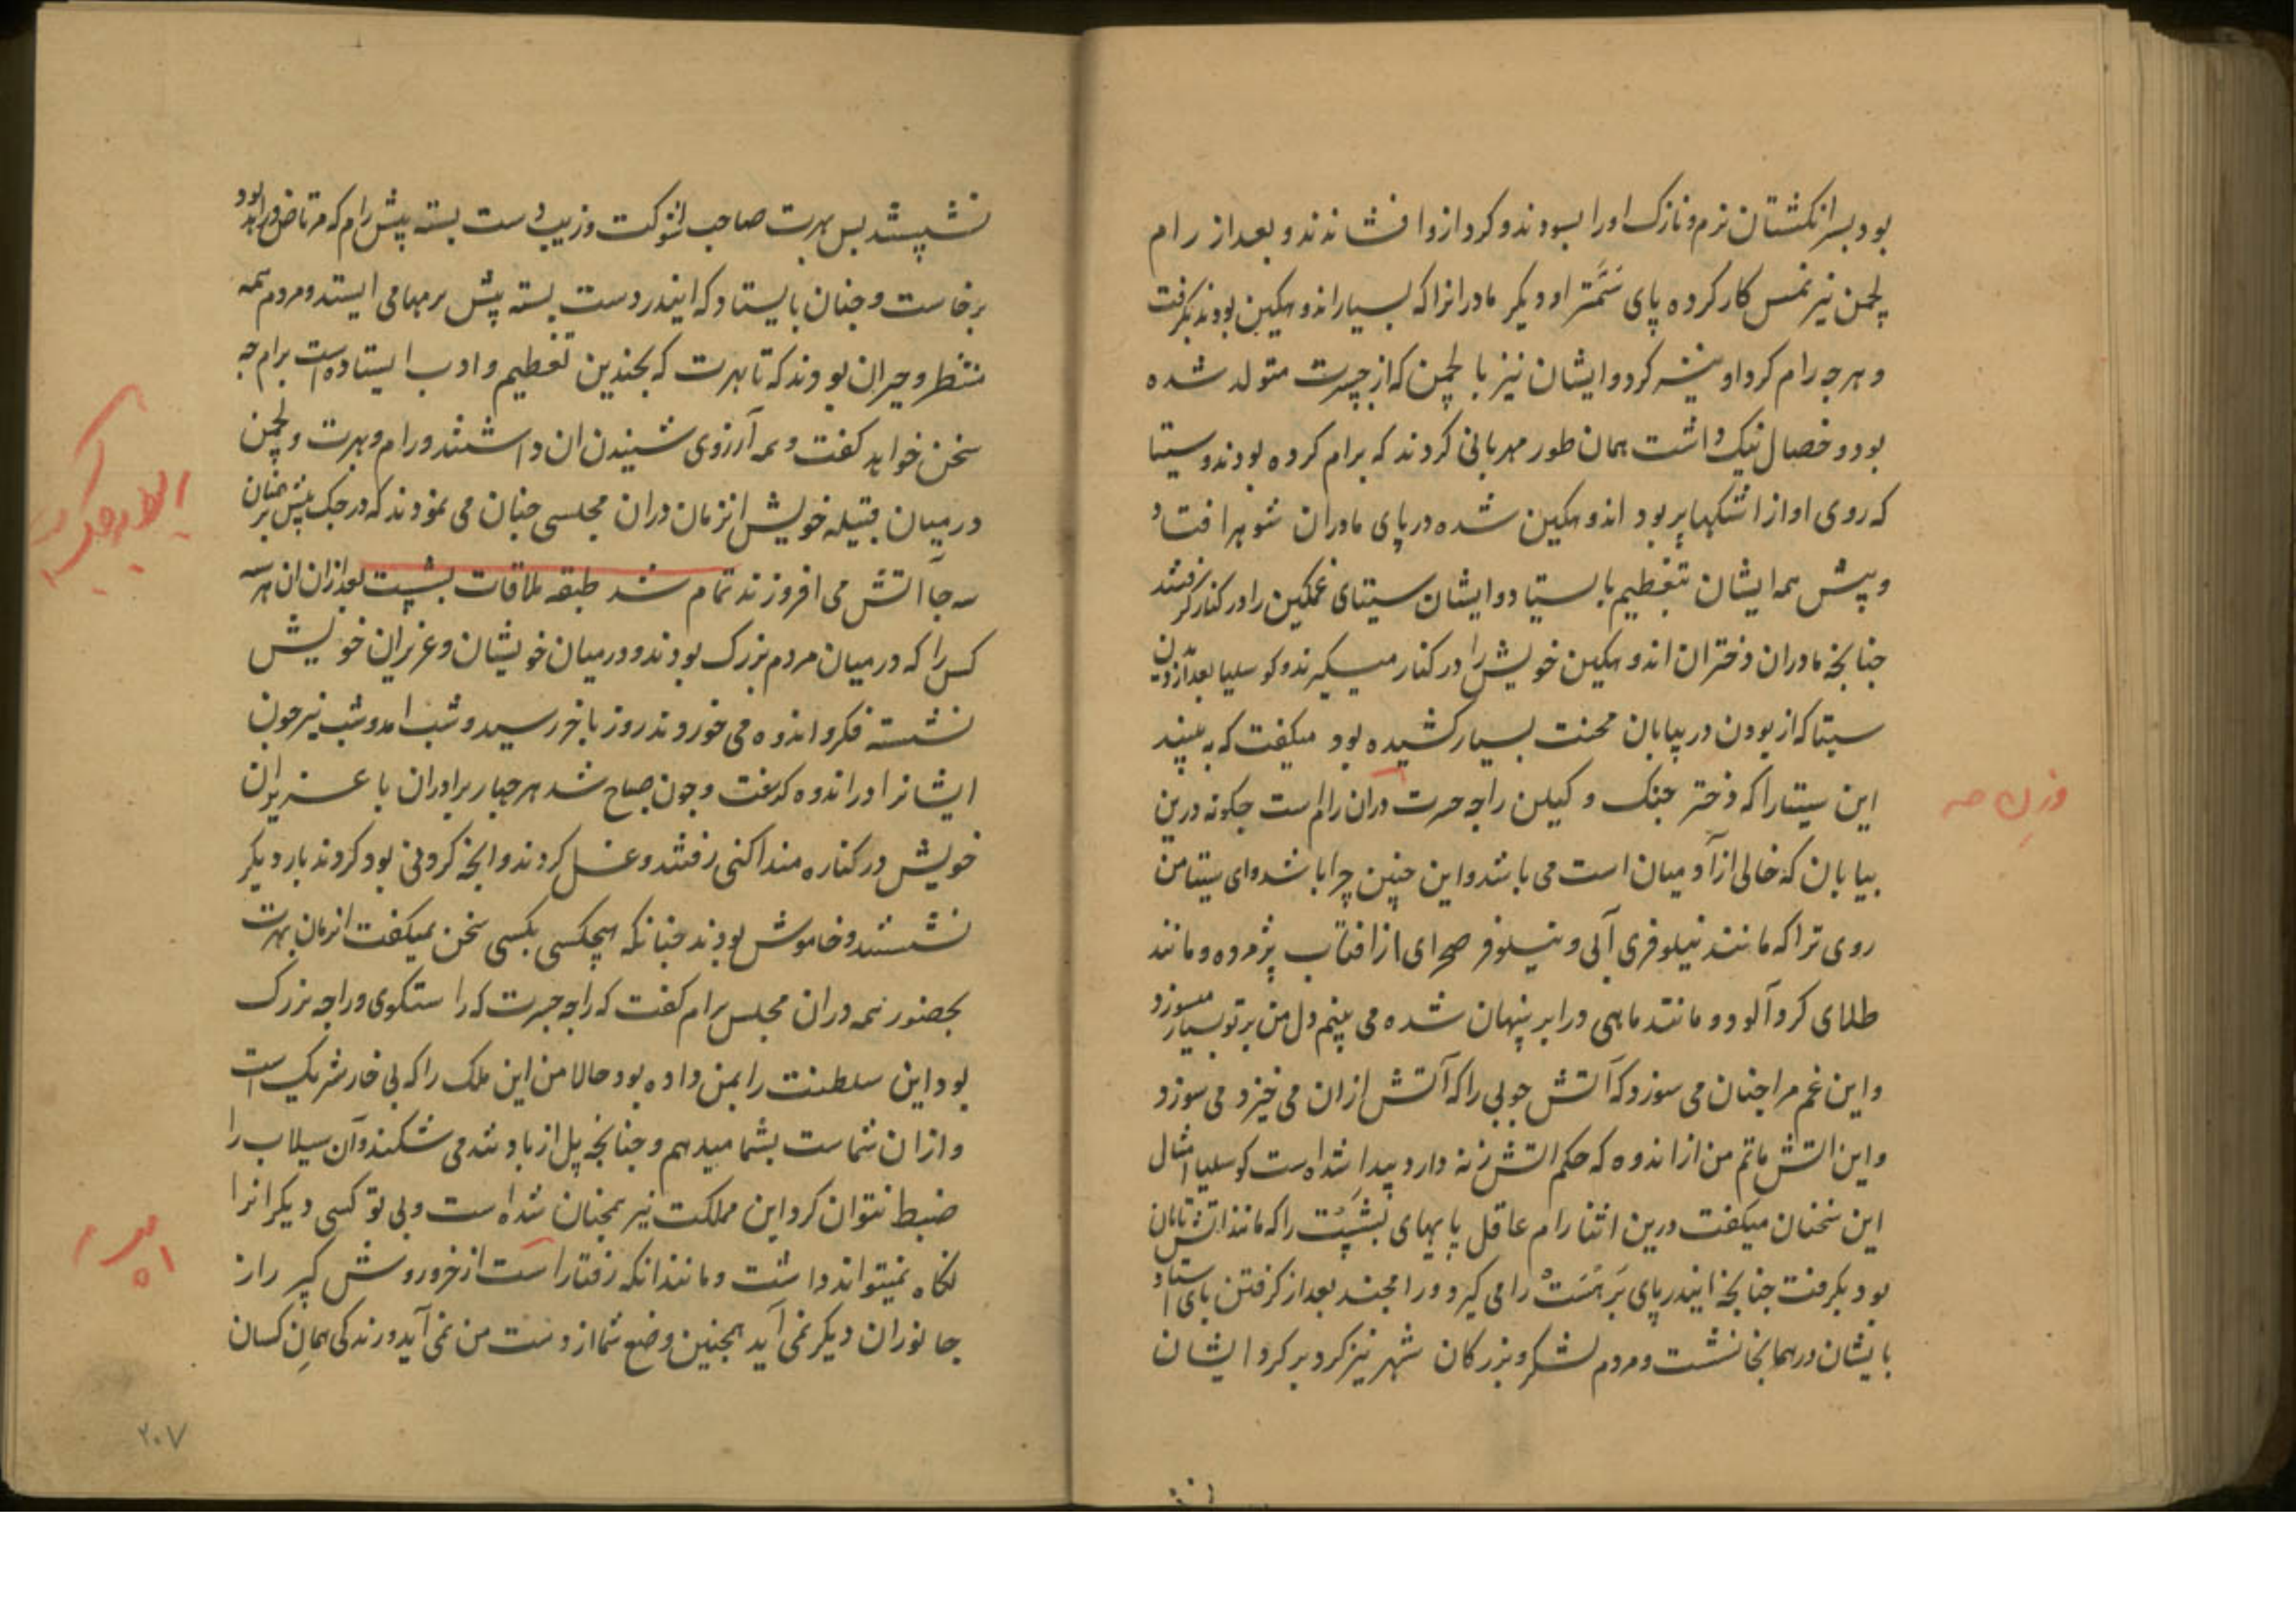 بود بسر انکشتان نرم و نازک او را بسودند و کرد ازو افشاندند و بعد از رام
لچمن نیز نمس کار کرده پای سَمَترا و دیکر مادرانرا که بسیار اندوهکین بودند بکرفت
و هر چه رام کرد او نیز کرد و ایشان نیز با لچمن که از جسرت متولد شده
بود و خصال نیک داشت همان طور مهربانی کردند که برام کرده بودند و سیتا
که روی او از اشکها پر بود اندوهکین شده در پای مادران شوهر افتاد
و پیش همه ایشان بتعظیم بایستاد و ایشان سیتای غمکین را در کنار کرفتند
چنانچه مادران دختران اندوهکین خویش را در کنار میکیرند و کوسلیا بعد از دیدن
سیتا که از بودن در بیابان محنت بسیار کشیده بود میکفت که به بینید
این سیتا را که دختر جنک و کیلن راجه جسرت و زن رام است چکونه درین
بیابان که خالی از آدمیان است می باشد و این چنین چرا باشد و ای سیتا من
روی ترا که مانند نیلوفری آبی و نیلوفر صحرای از افتاب پژمرده و مانند
طلای کرد آلود و مانند ماهی در ابر پنهان شده می بینم دل من بر تو بسیار میسوزد
و این غم مرا چنان می سوزد که آتش چوبی را که آتش ازان می خیزد می سوزد
و این اتش ماتم من از اندوه که حکم اتش زنه دارد پیدا شده است کوسلیا امثال
این سخنان میکفت درین اثنا رام عاقل پایهای بَشِپت را که مانند اتش تابان
بود بکرفت چنانچه ایندر پای بَرهَسَتْ را می کیرد و رامچند بعد از کرفتن پای استاد
بایشان در همانجا نشست و مردم لشکر و بزرکان شهر نیز کرد بر کرد ایشان
نشستند پس بهرت صاحب شوکت و زیب دست بسته پیش رام که مرتاض ورابد بود
برخاست و چنان بایستاد که ایندر دست بسته پیش برمها می ایستد و مردم همه
منتظر و حیران بودند که تا بهرت که بچندین تعظیم و ادب ایستاده است برام چه
سخن خواهد کفت و همه آرزوی شنیدن ان داشتند و رام و بهرت و لچمن
در میان قبیله خویش انزمان دران مجلسی چنان می نمودند که در جک پیش برهمنان
سه جا آتش می افروزند تمام شد طبقه ملاقات بشپت بعد ازان ان هر سه
کس را که در میان مردم بزرک بودند و در میان خویشان و عزیزان خویش
نشسته فکر و اندوه می خوردند روز باخر رسید و شب امد و شب نیز چون
ایشانرا در اندوه کذشت و چون صباح شد هر چهار برادران با عزیزان
خویش در کناره منداکنی رفتند و غسل کردند و انچه کردنی بود کردند بار دیکر
نشستند و خاموش بودند چنانکه هیچکسی بکسی سخن نمیکفت انزمان بهرت
بحضور همه دران مجلس برام کفت که راجه جسرت که راستکوی و راجه بزرک
بود این سلطنت را بمن داده بود حالا من این ملک را که بی خار شریک است
و ازان شماست بشما میدهم و چنانچه پل از باد تند می شکند و آن سیلاب را
ضبط نتوان کرد این مملکت نیز همچنان شده است و بی تو کسی دیکر انرا
نکاه نمیتواند داشت و مانند انکه رفتار است از خر و روش کیر راز
جانوران دیکر نمی آید همچنین وضع شما از دست من نمی آید و زندکی همان کسان
۲۰۷